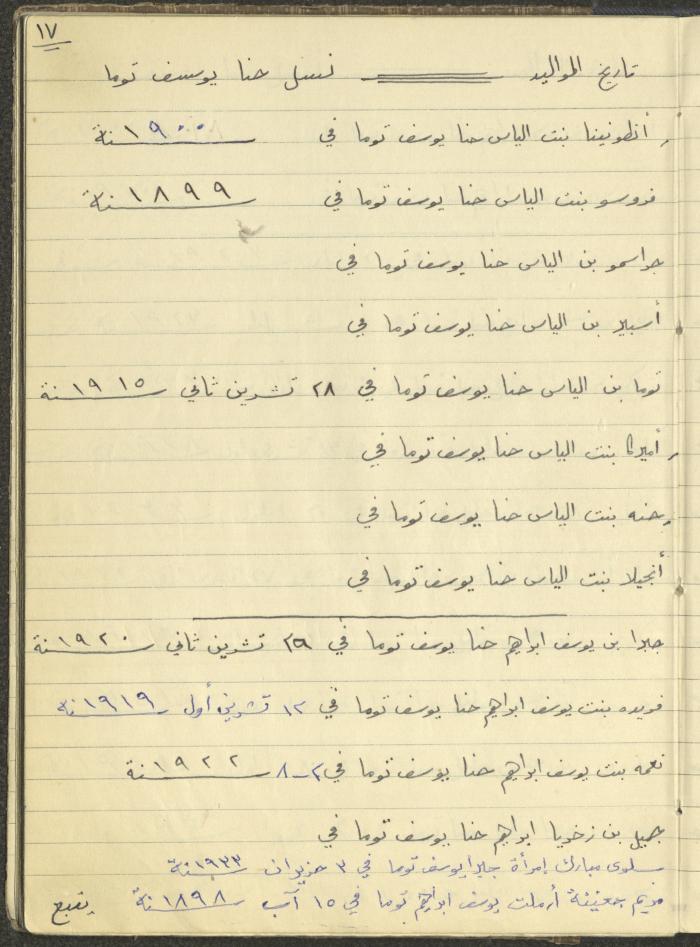 ١٧
تاريخ المواليد نسل حنا يوسف توما
أنطونينا بنت الياس حنا يوسف توما في سنة ١٩٠٠
فروسو بنت الياس حنا يوسف توما في سنة ١٨٩٩
جراسمو بن الياس حنا يوسف توما في
أسبير بن الياس حنا يوسف توما في
توما بن الياس حنا يوسف توما في ٢٨ تشرين ثاني سنة ١٩١٥
أميركا بنت الياس حنا يوسف توما في
حنه بنت الياس حنا يوسف توما في
أنجيلا بنت الياس حنا يوسف توما في
جبرا بن يوسف ابراهيم حنا يوسف توما في ٢٩ تشرين ثاني سنة ١٩٢٠
فريده بنت يوسف ابراهيم حنا يوسف توما في ١٢ تشرين أول سنة ١٩١٩
نعمه بنت يوسف ابراهيم حنا يوسف توما في ٢-٨ سنة ١٩٢٢
جميل بن زخريا ابراهيم حنا يوسف توما في
سلوى مبارك إمرأة جابر ايوسف توما في ٣ حزيران سنة ١٩٣٣
مريم جعنينة أرملت يوسف ابراهيم توما في ١٥ آب سنة ١٨٩٨ يتبع